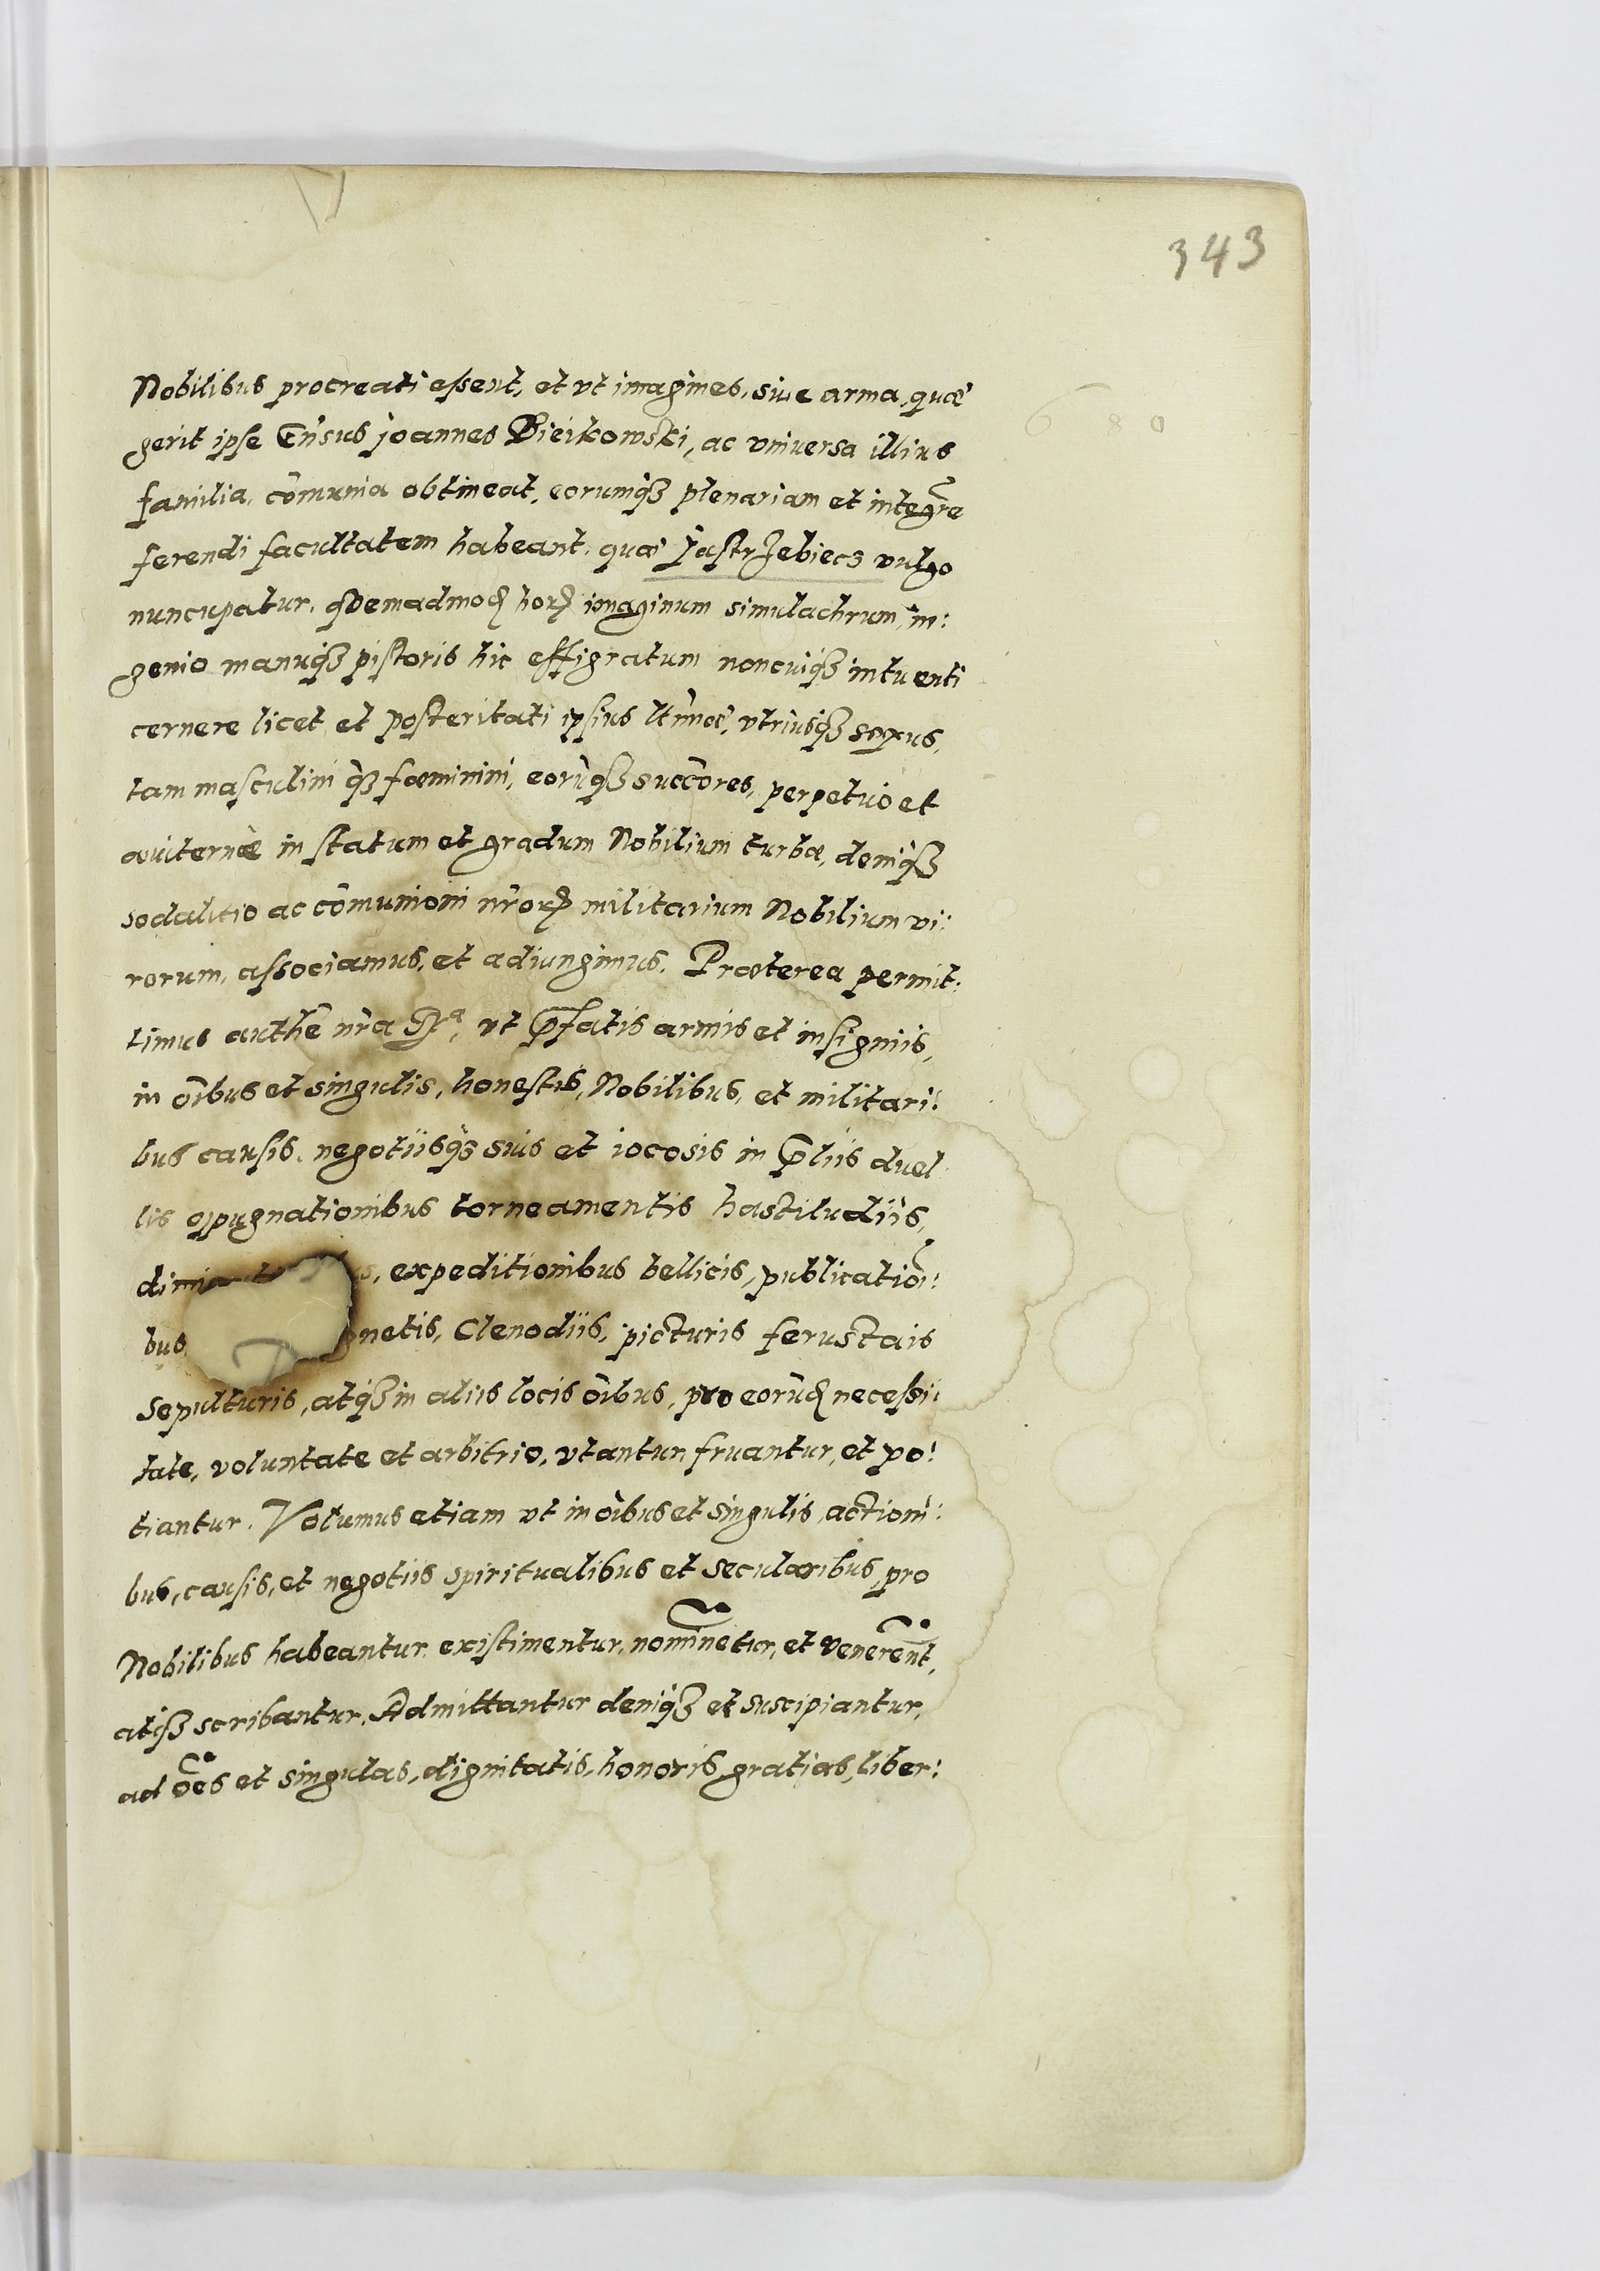 343
680
Nobilibus procreati essent, et vt imagines, siue arma, quæ
gerit ipse Gñsus joannes Bieikowski, ac vniuersa illius
familia, cõmunia obtineat, eorumqȝ plenariam et integre
ferendi facultatem habeant, quæ Jastrzebiecz vulgo
nuncupatur, qdemadmoꝝ horꝝ imaginum simulachrum, in:
genio manuqȝ pistoris hic effigratum noncuiqȝ intuenti
cernere licet, et posteritati ipsius ltimæ, vtriusqȝ sexus,
tam masculini qȝ fœminini, eorũqȝ succores, perpetuo et
æuiternè in statum et gradum Nobilium turbæ, deniqȝ
sodalitio ac cõmunioni nrorꝝ militarium Nobilium vi:
rorum, associamus, et adiungimus. Præterea permit:
timus authẽ nra Ra, vt pfatis armis et insigniis,
in oĩbus et singulis, honestis, Nobilibus, et militari:
bus causis, negotiisqȝ suis et iocosis in pliis duel
lis oppugnationibus torneamentis hastiludiis,
expeditionibus bellicis, publication:
bus netis, Clenodiis, picturis ferustais
sepulturis, atqȝ in aliis locis oĩbus, pro eorũꝝ necessi:
tate, voluntate et arbitrio, vtantur, fruantur, et po:
tiantur. Volumus etiam vt in oĩbus et singulis, actioni:
bus, causis, et negotiis spiritualibus et secularibus, pro
Nobilibus habeantur, existimentur, nominetur, et venerent,
atqȝ scribantur. Admittantur deniqȝ et suscipiantur,
ad oẽs et singulas, dignitatis, honoris, gratias, liber: